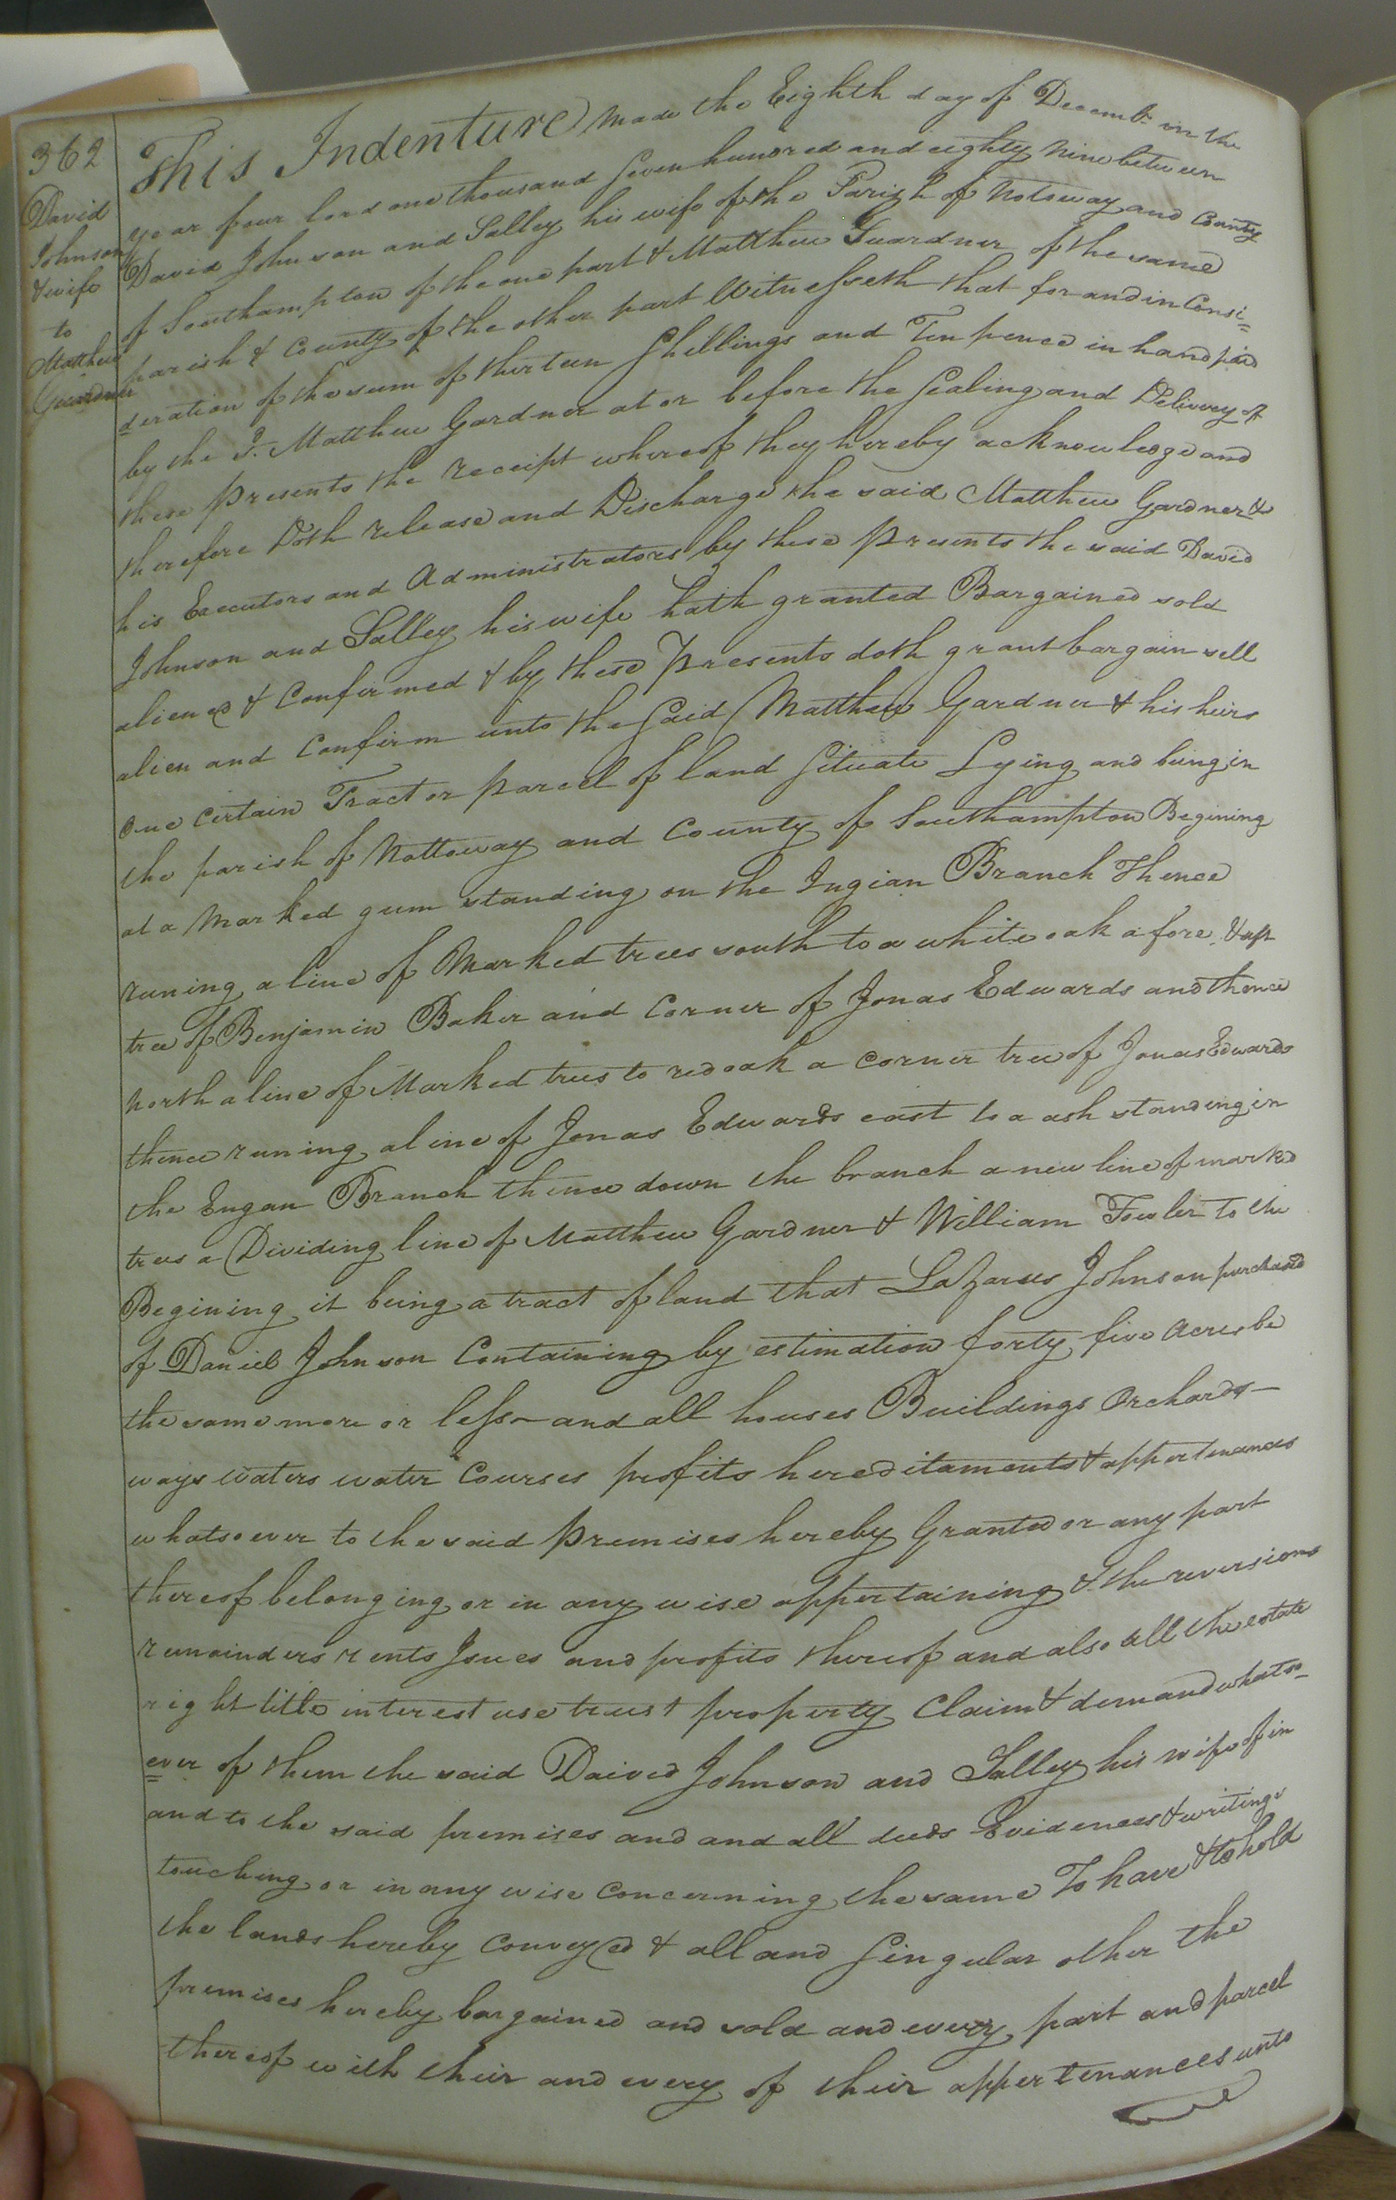 362
David
Johnson
& wife
to
Matthew
Guardner
This Indenture made the Eighth day of Decemb. in the
year of our lord one thousand Seven hundred and eighty nine between
David Johnson and Salley his wife of the Parish of Notoway and County
of Southampton of the one part & Matthew Guardner of the same
parish & County of the other part Witnesseth that for and in Consi=
deration of the sum of thirteen Shillings and Ten pence in hand paid
by the S. Matthew Gardner at or before the Sealing and Delivery of
these presents the receipt whereof they hereby acknowledge and
therefore Doth release and Discharge the said Matthew Gardner &
his Executors and Administrators by these presents the said David
Johnson and Salley his wife hath granted Bargained sold
aliened & Confirmed & by these Presents doth grant bargain sell
alien and Confirm unto the Said Matthew Gardner & his heirs
One Certain Tract or parcel of land Situate Lying and being in
the parish of Nottoway and County of Southampton Begining
at a Marked gum standing on the Ingian Branch Thence
runing a line of Marked trees south to a white oak a fore & aft
tree of Benjamin Baker and Corner of Jonas Edwards and thence
north a line of Marked trees to red oak a corner tree of Jonas Edwards
thence runing a line of Jonas Edwards east to a ash standing in
the Engan Branch thence down the branch a new line of marked
trees a Dividing line of Matthew Gardner & William Fowler to the
Begining it being a tract of land that Lazarus Johnson purchased
of Daniel Johnson Containing by estimation forty five Acres be
the same more or less and all houses Buildings Orchards
ways waters water Courses profits hereditaments & appertenances
whatsoever to the said premises hereby Granted or any part
thereof belonging or in any wise appertaining & the reversions
remainders rents Isues and profits thereof and also all the estate
right title interest use trust property Claim & demand whatso=
ever of them the said Daived Johnson and Salley his wife of in
and to the said premises and and all deeds Evidences & writings
touching or in any wise Concerning the same To have & to hold
the lands hereby Conveyed & all and Singular other the
premises hereby bargained and sold and every part and parcel
thereof with their and every of their appertenances unto